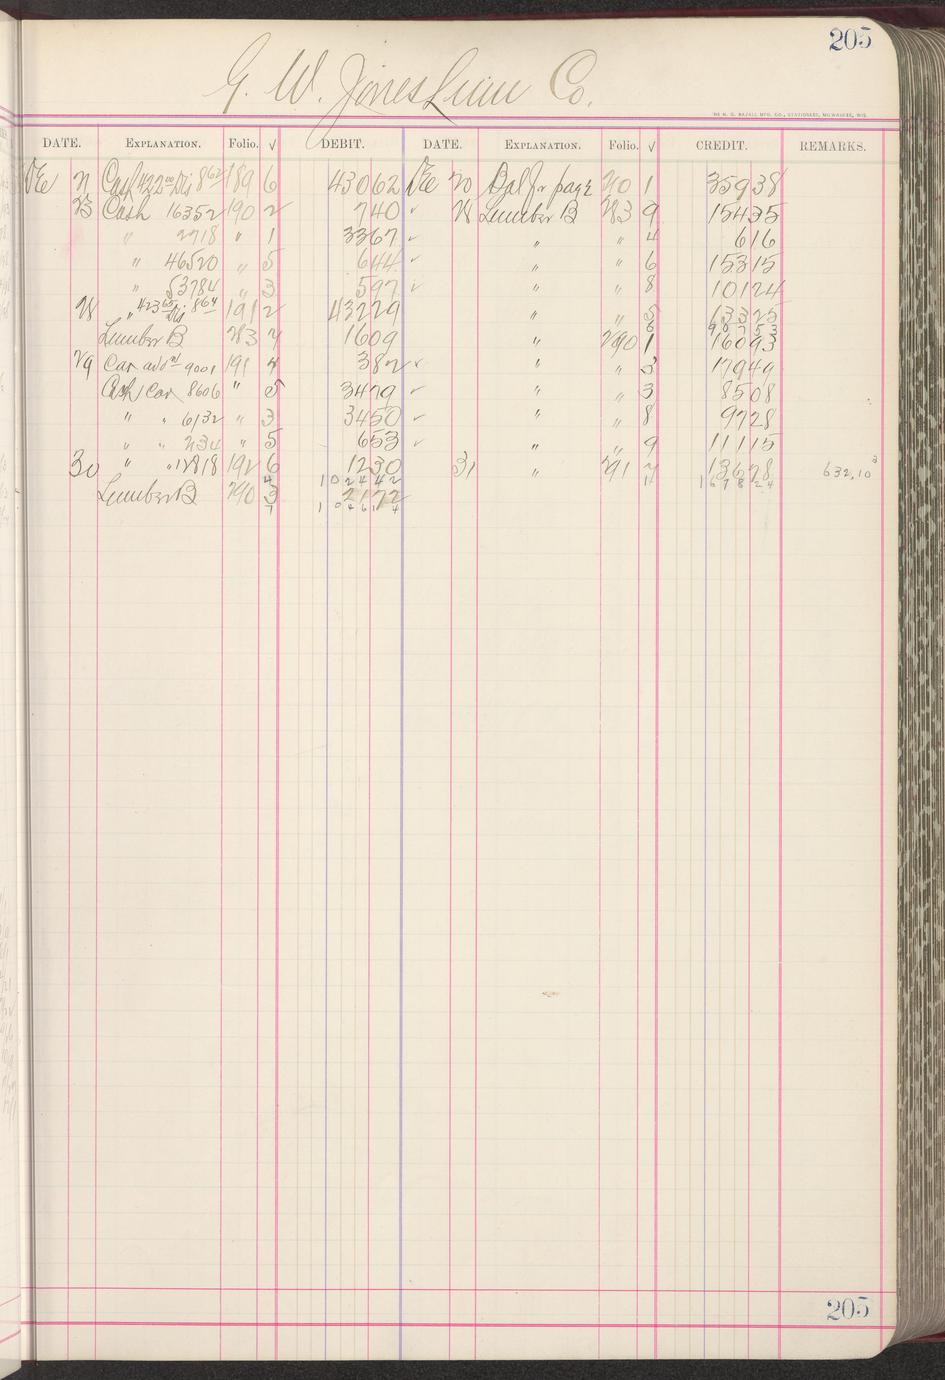 205
G. W. Jones Lum Co.
THE H. G. RAZALL MFG. CO., STATIONERS, MILWAUKEE, WIS.
DATE. EXPLANATION. Folio. √ DEBIT. DATE. EXPLANATION. Folio. √ CREDIT. REMARKS.
Dec 21 Cash 422 00 Dis 8 62 189 6 430 62 Dec 20 Bal fr page 210 1 359 38
23 Cash 16352 190 2 7 40 ✓ 28 Lumber B 283 9 154 35
" 2718 " 1 33 67 ✓ " " 4 6 16
" 46520 " 5 6 44 ✓ " " 6 153 15
" 53784 " 3 5 97 ✓ " " 8 101 24
28 " 423 65 Dis 8 64 191 2 432 29 " " 5 133 25
6 907 53
Lumber B 283 7 16 09 " 290 1 160 93
29 Car advd 9001 191 4 3 82 ✓ " " 3 179 49
Cash Car 8606 " 5 34 79 ✓ " " 3 85 08
" " 6132 " 3 34 50 ✓ " " 8 97 28
" " 234 " 5 6 53 ✓ " " 9 111 15
30 " " 12818 192 6 12 30 31 " 291 7 136 78 632,10
4 1024 42 11 1678 24
Lumber B 290 3 21 72
7 1046 14
205